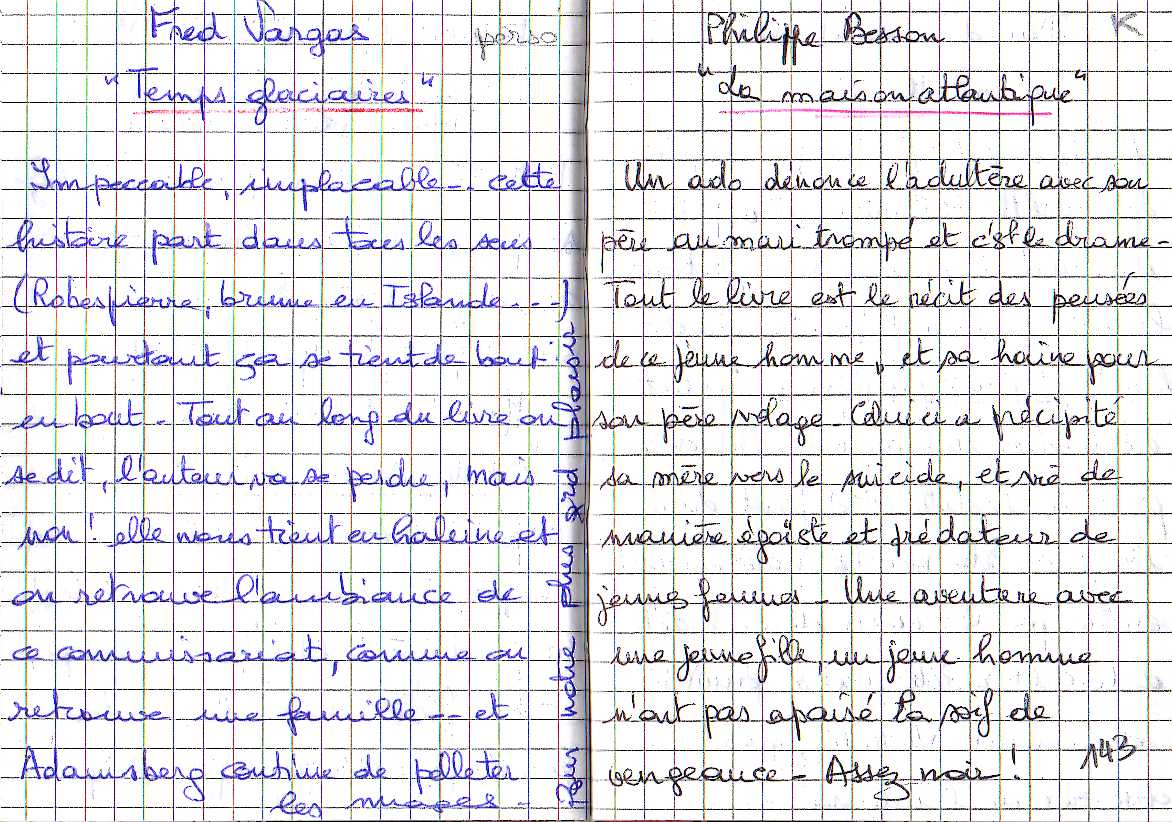 Fred Vargas
perso
"Temps glaciaires"
Impeccable, implacable -- cette
histoire part dans tous les sens
(Robespierre, brume en Islande ---)
et pourtant ça se tient de bout
en bout - Tout au long du livre on
se dit, l'auteur va se perdre, mais
non ! elle nous tient en haleine et
on retrouve l'ambiance de
ce commissariat, comme on
retrouve une famille -- et
Adamsberg continue de pelleter
les nuages -
pour notre plus grd plaisir
Philippe Besson
K
"La maison atlantique"
Un ado dénonce l'adultère avec son
père au mari trompé et c'est le drame -
Tout le livre est le récit des pensées
de ce jeune homme, et sa haine pour
son père volage - Celui ci a précipité
sa mère vers le suicide, et vit de
manière égoïste et prédateur de
jeunes femmes - Une aventure avec
une jeune fille, un jeune homme
n'ont pas apaisé la soif de
vengeance - Assez noir !
143